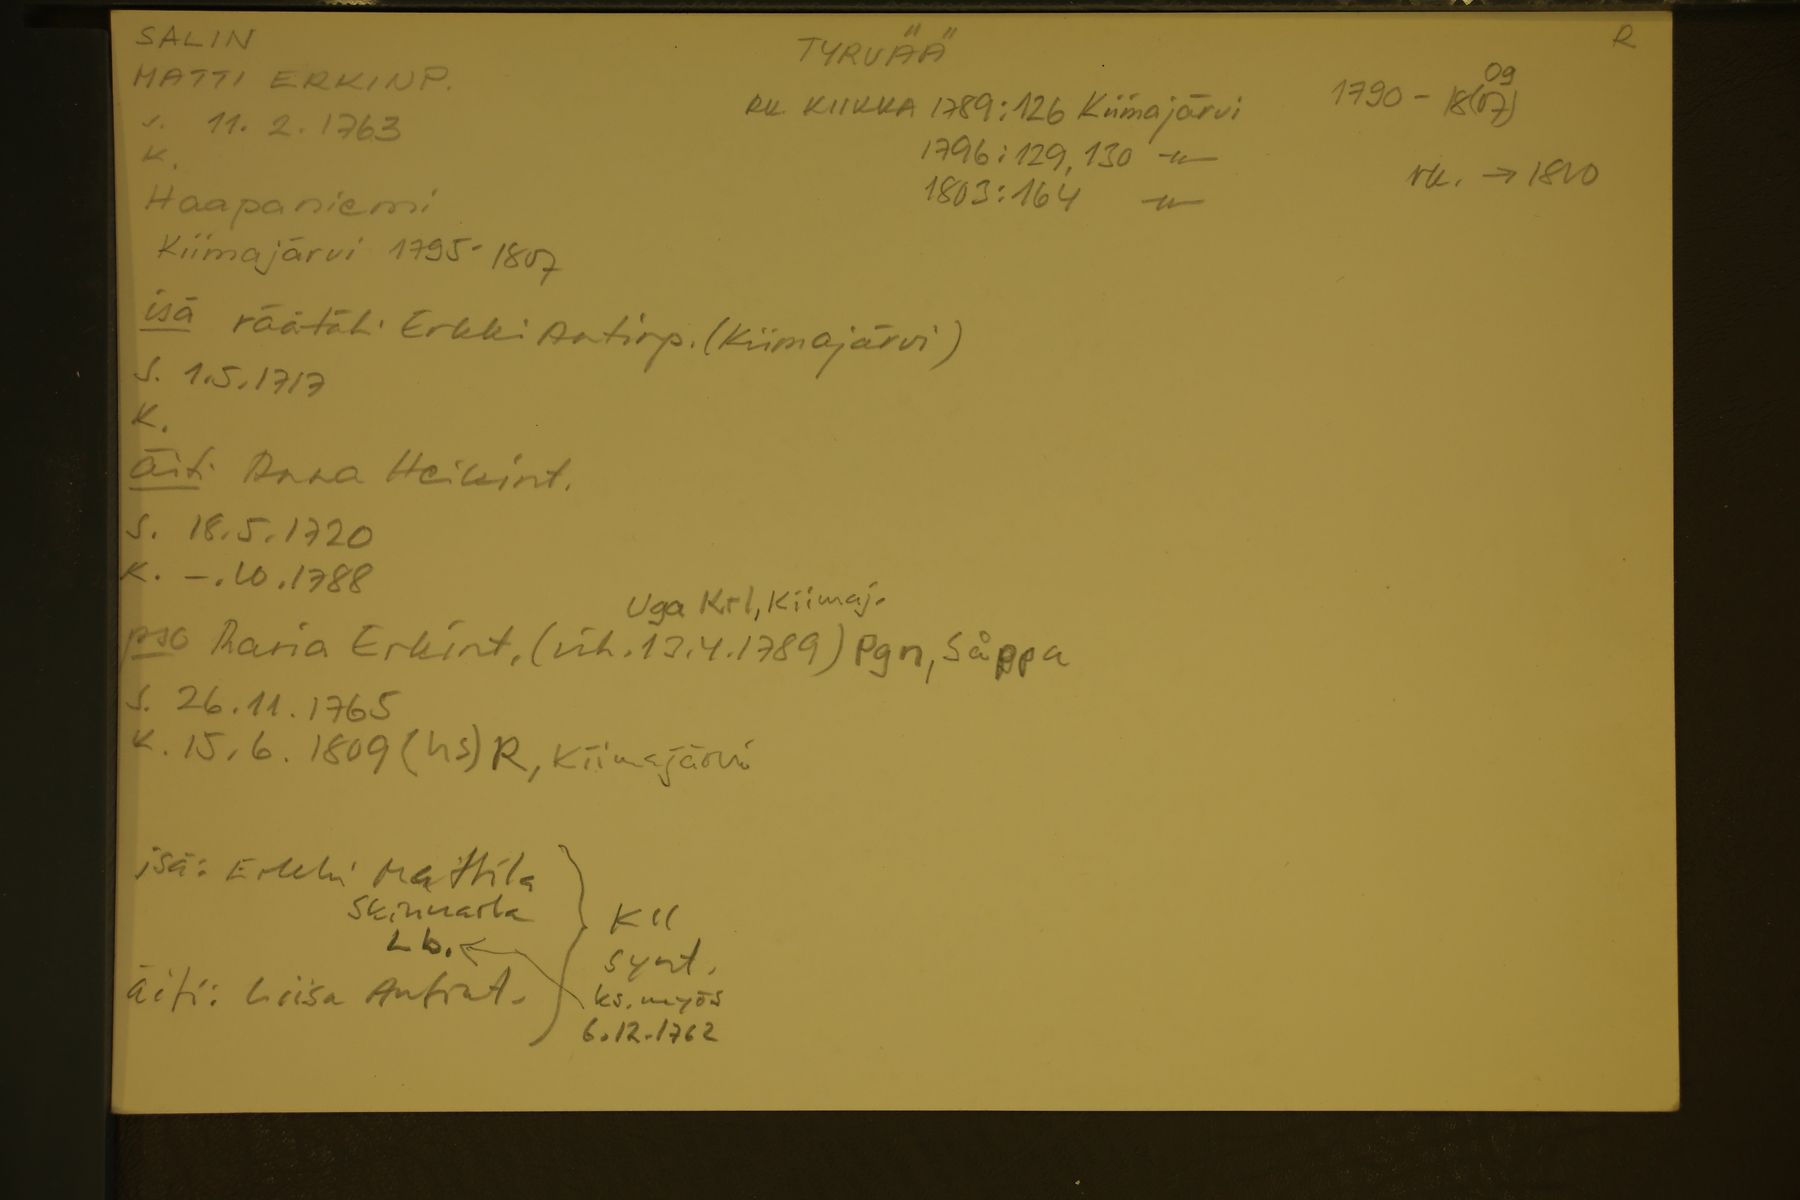 SALIN
MATTI ERKINP.
s. 11.2.1763
K.
Haapaniemi
Kiimajärvi 1795-1807
TYRVÄÄ
RK. KIIKKA 1789:126 Kiimajärvi
1796:129,130 -"-
1803:164 -"-
R
09
1790 - 18(07)
rk. → 1810
isä räätäli Erkki Antinp. (Kiimajärvi)
S. 1.5.1717
K.
äiti Anna Heikint.
S. 18.5.1720
K. -.10.1788
Uga Krl, Kiimaj.
pso Maria Erkint. (vih. 13.4.1789) Pgn, Såppa
S. 26.11.1765
K. 15.6.1809 (hs) R, Kiimajärvi
isä: Erkki Mattila
Skinnarla
Lb.
äiti: Liisa Antint.
KII
synt.
ks. myös
6.12.1762